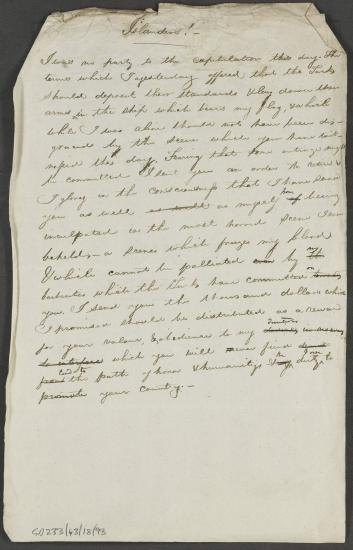 Islanders! —
I was no party to the capitulation this day. The
terms which I yesterday offered that the Turks
should deposit their Standards & lay down their
arms in the ship which bears my flag, & which
while I was alive should not have been dis-
graced by the scene which you have wit-
nessed this day. Fearing that some outrage might
be committed I sent you an order to retire &
I glory in the consciousness that I have saved
you as well as myself from being
inculpated in the most horrid scene I ever
beheld — a scene which freezes my blood
& which cannot be palliated by any
barbarities which the Turks have committed on
you. I send you the thousand dollars which
I promised should be distributed as a reward
for your valour, & obedience to my
which you will ever find
the path of honor & humanity & duty to
promote your country. —
GD233/43/18/93